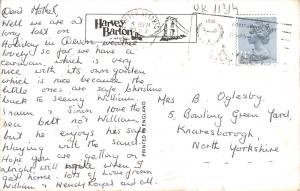 UK 11314
Dear Mabel,
Well we are at
long last on
Holiday in Devon weather
lovely so far we have a
caravan, which is very
nice with its own garden
which is nice because the
little ones are safe
back to seeing William.
Shaun & Simon love the
sea but not William
but he enjoys his self
playing with the sand.
Hope you are getting on
alright will write when I
get home. lots of love from
William & and all.
Harvey
Barton
PRINTED IN ENGLAND
Mrs B Oglesby
5, Bowling Green Yard,
Knaresborough,
North Yorkshire